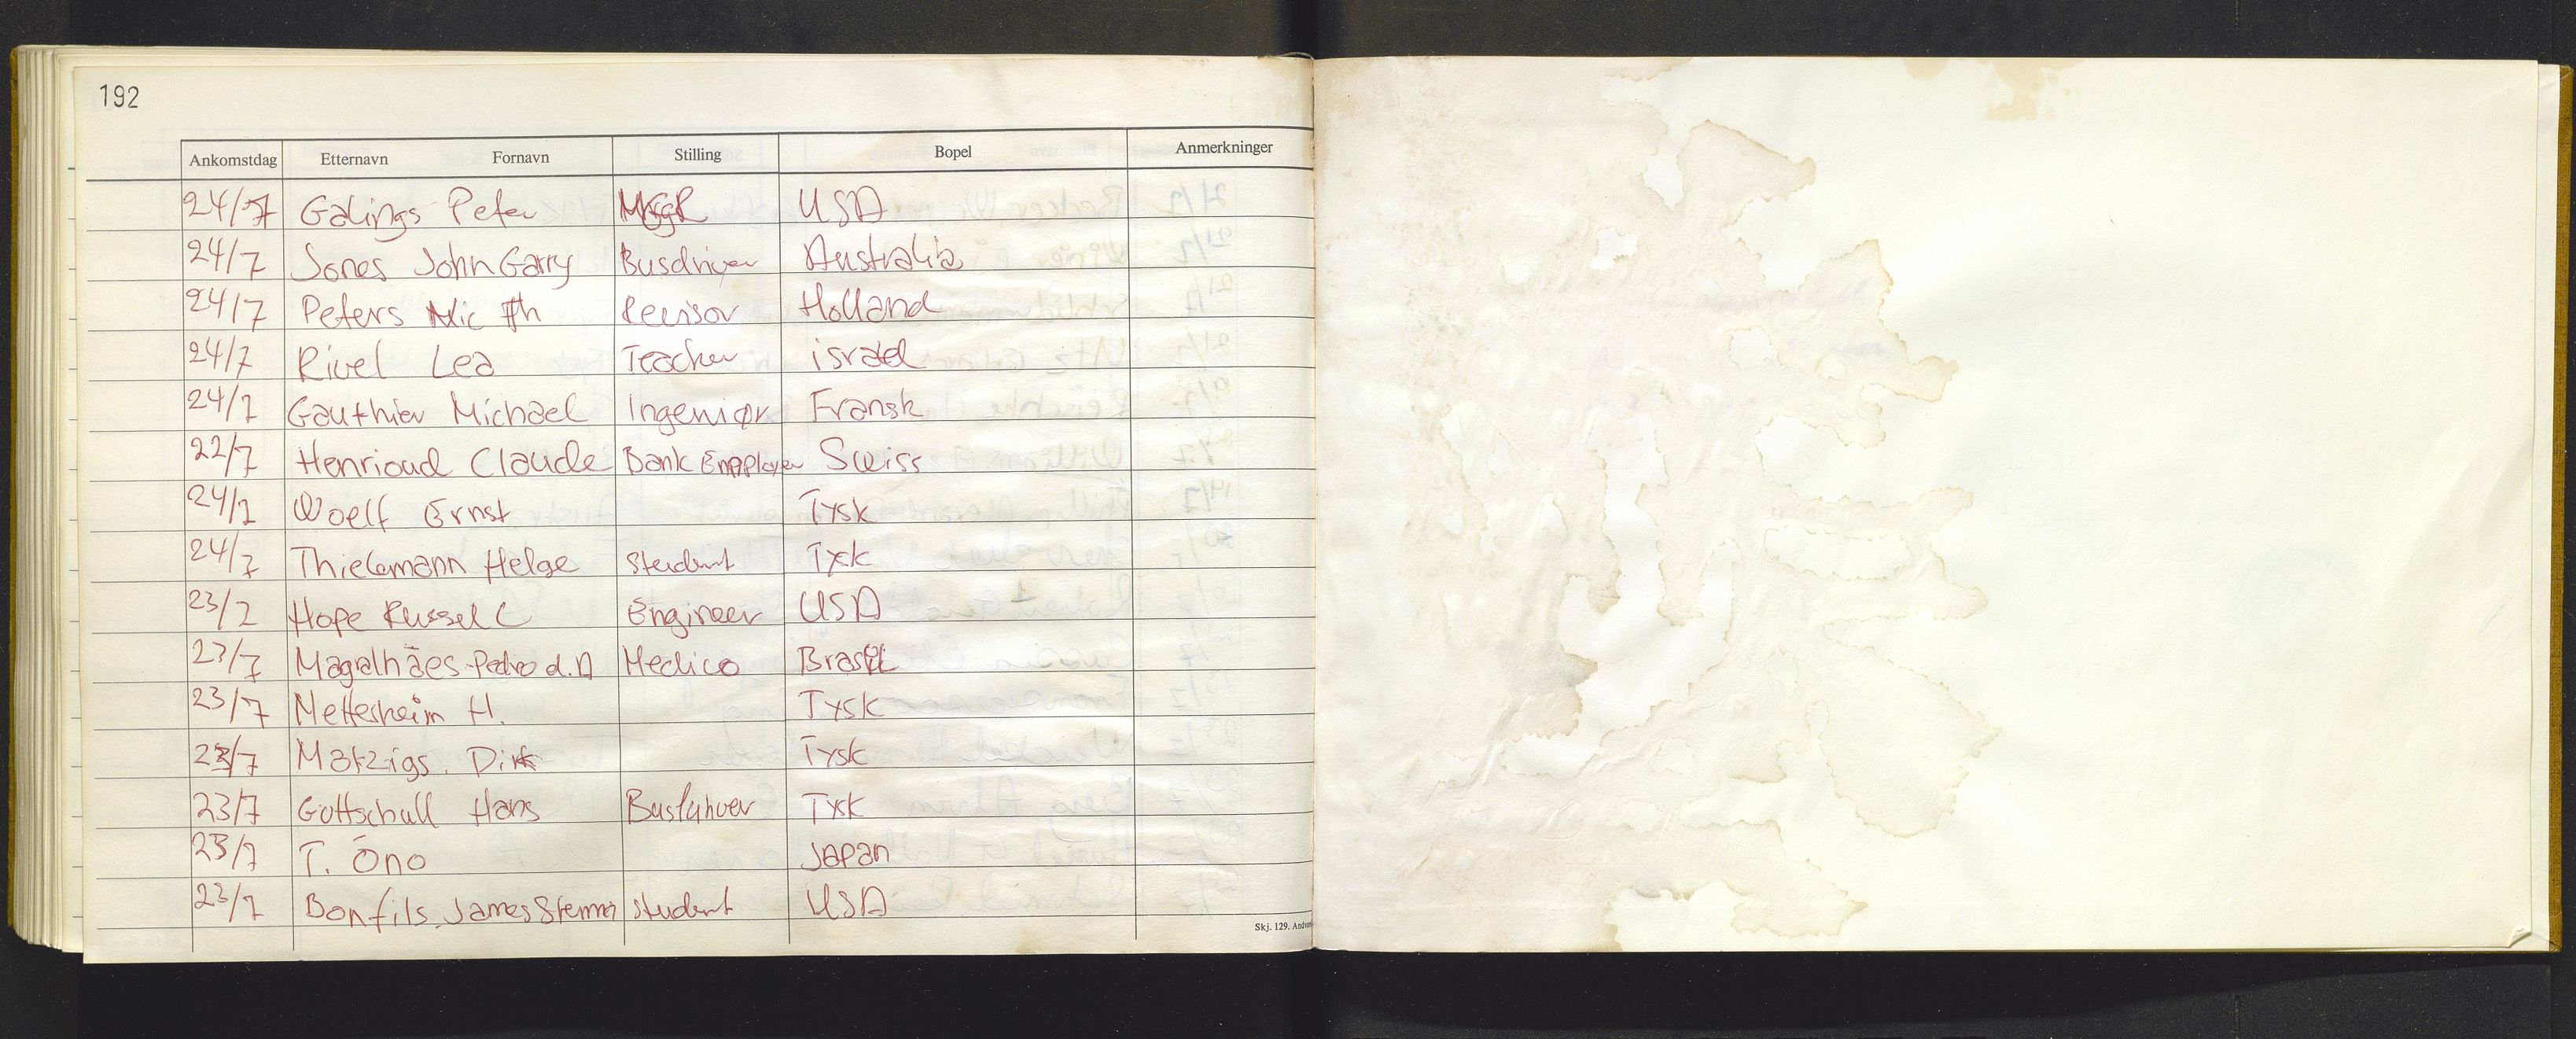 192
Ankomstdag Etternavn Fornavn Stilling Bopel Anmerkninger
24/7 Galings Peter MGR USA
24/7 Jones John Garry Busdriver Australia
24/7 Peters Nic Th Revisor Holland
24/7 Rivel Lea Teacher israel
24/7 Gauthier Michael Ingeniør Fransk
22/7 Henrioud Claude Bank Employer Swiss
24/7 Woelf Ernst Tysk
24/7 Thielemann Helge Student Tysk
23/7 Hope Russel C Engineer USA
23/7 Magalhães Pedro d. A Medico Brasil
23/7 Mettesheim H. Tysk
23/7 Matzigs. Dirk Tysk
23/7 Gottschall Hans Tysk
23/7 T. Ōno Japan
23/7 Bonfils James student USA
Skj. 129.